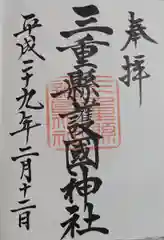 奉拝
三重縣護國神社
平成二十九年二月十二日